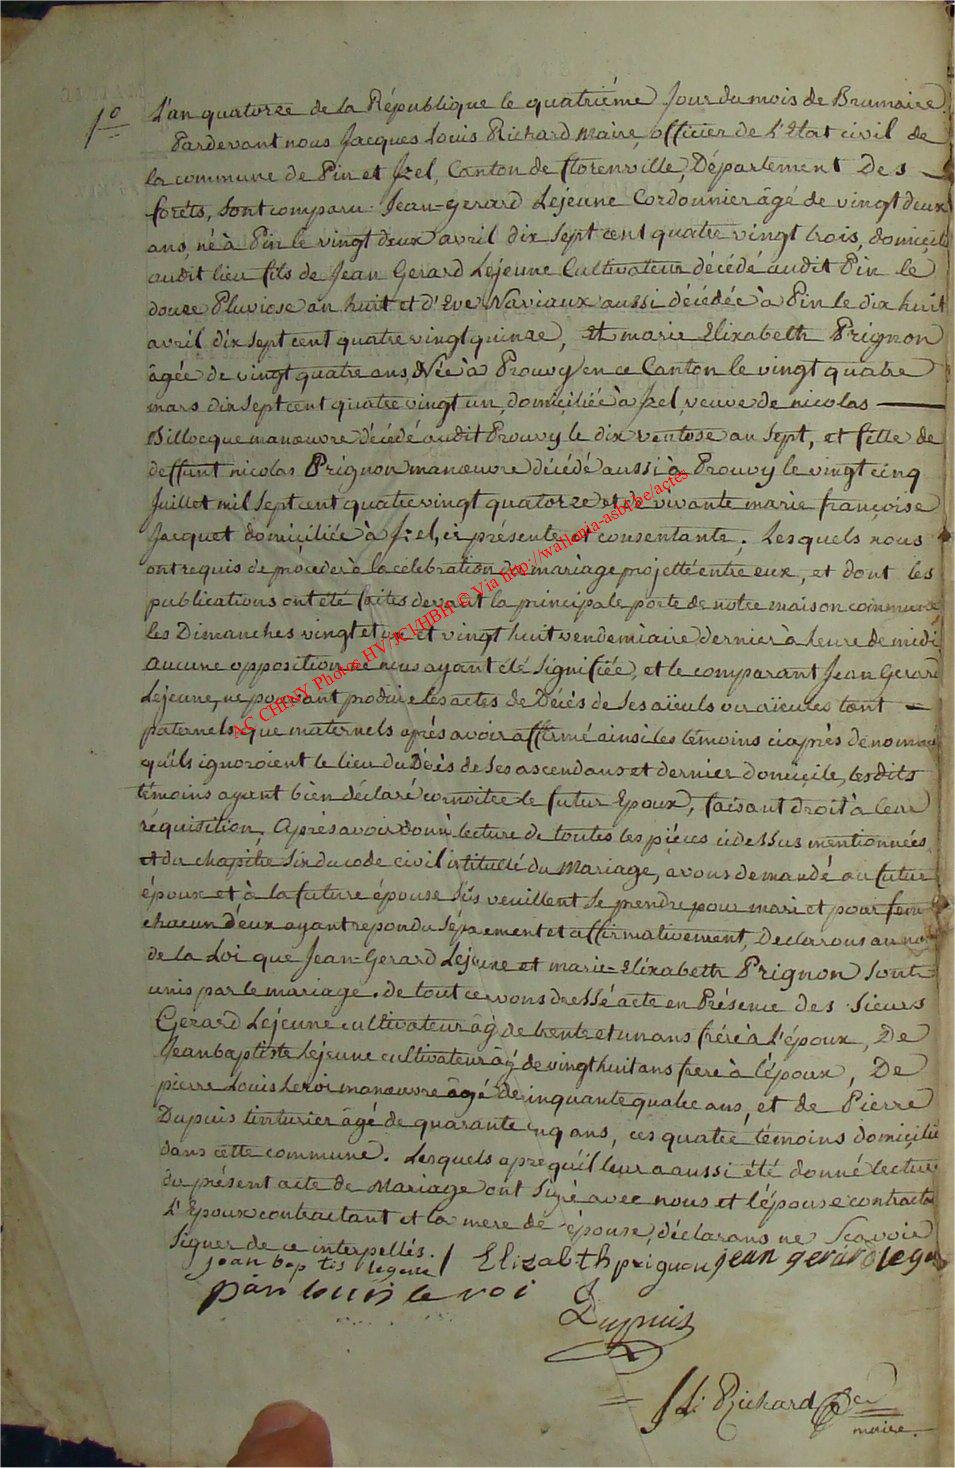 1º
L'an quatorze de la République le quatriéme Jour du mois de Brumaire
Pardevant nous Jacques Louis Richard Maire, officier de L'Etat civil de
la commune de Pin et Izel, Canton de florenville, Département Des
forêts, Sont comparu Jean-Gerard Lejeune Cordonnier âgé de vingt deux
ans, né à Pin le vingt deux avril dix sept cent quatre vingt trois, domicilié
audit lieu fils de Jean Gerard Lejeune Cultivateur décédé audit Pin le
douze Pluviose an huit et d'Eve Naviaux aussi décédée à Pin le dix huit
avril dix sept cent quatre vingt quinze, Et marie Elixabeth Prignon
âgée de vingt quatre ans, Née à Prouvy en ce Canton le vingt quatre
mars dix sept cent quatre vingt un, domiciliée à Izel, veuve de nicolas
Billocque manœuvre décédé audit Prouvy le dix ventose an sept, et fille de
deffunt nicolas Prignon manœuvre décédé aussi à Prouvy le vingt cinq
Juillet mil sept cent quatre vingt quatorze et de vivante marie françoise
Jacquet domiciliée à Izel, ici présente et consentante. Lesquels nous
ont requis de procéder à la célébration du mariage projetté entre eux, et dont les
publications ont été faites devant la principale porte de notre maison commune
les Dimanches vingt et un et vingt huit vendemiaire dernier à heure de midi
aucune opposition ne nous ayant été signifiée, et le comparant Jean Gerard
Lejeune, ne pouvant produire les actes de Décès de ses aïeuls ou aïeules tant
paternels que maternels après avoir affirmé ainsi les témoins ciaprès dénommés
qu'ils ignoroient le lieu du Décès de ses ascendans et dernier domicile, lesdits
témoins ayant bien déclaré connoitre le futur Epoux, faisant droit à leur
réquisition, Après avoir donné lecture de toutes les pièces cidessus mentionnées
et du chapitre six du code civil intitullé du Mariage, avons demandé au futur
époux et à la future épouse s'ils veuillent se prendre pour mari et pour fem
chacun d'eux ayant repondu séparement et affirmativement, Declarons au nom
de la Loi que Jean-Gerard Lejeune et marie-Elixabeth Prignon Sont
unis par le mariage. de tout ce avons dressé acte en Présence des sieurs
Gerard Lejeune cultivateur âgé de trente et un ans frère à L'époux, De
Jean baptiste Lejeune cultivateur âgé de vingt huit ans frere à l'époux, De
pierre Louis Leroi manœuvre âgé de cinquante quatre ans, et de Pierre
Dupuis tinturier âgé de quarante cinq ans, ces quatre témoins domicilié
dans cette commune. Lesquels après qu'il leur a aussi été donné lecture
du présent acte de Mariage ont Signé avec nous et l'épouse contracta
L'Epoux contractant et la mere de épouse, déclarans ne Scavoir
Signer de ce interpellés.
jean bap tis legene Elizabeth prignon jean gerard lege
piär louis le roi
Dupuis
J L: Richard
maire.
AC CHINY Photos HV/JCl/HBH © Via http://wallonia-asbl.be/actes